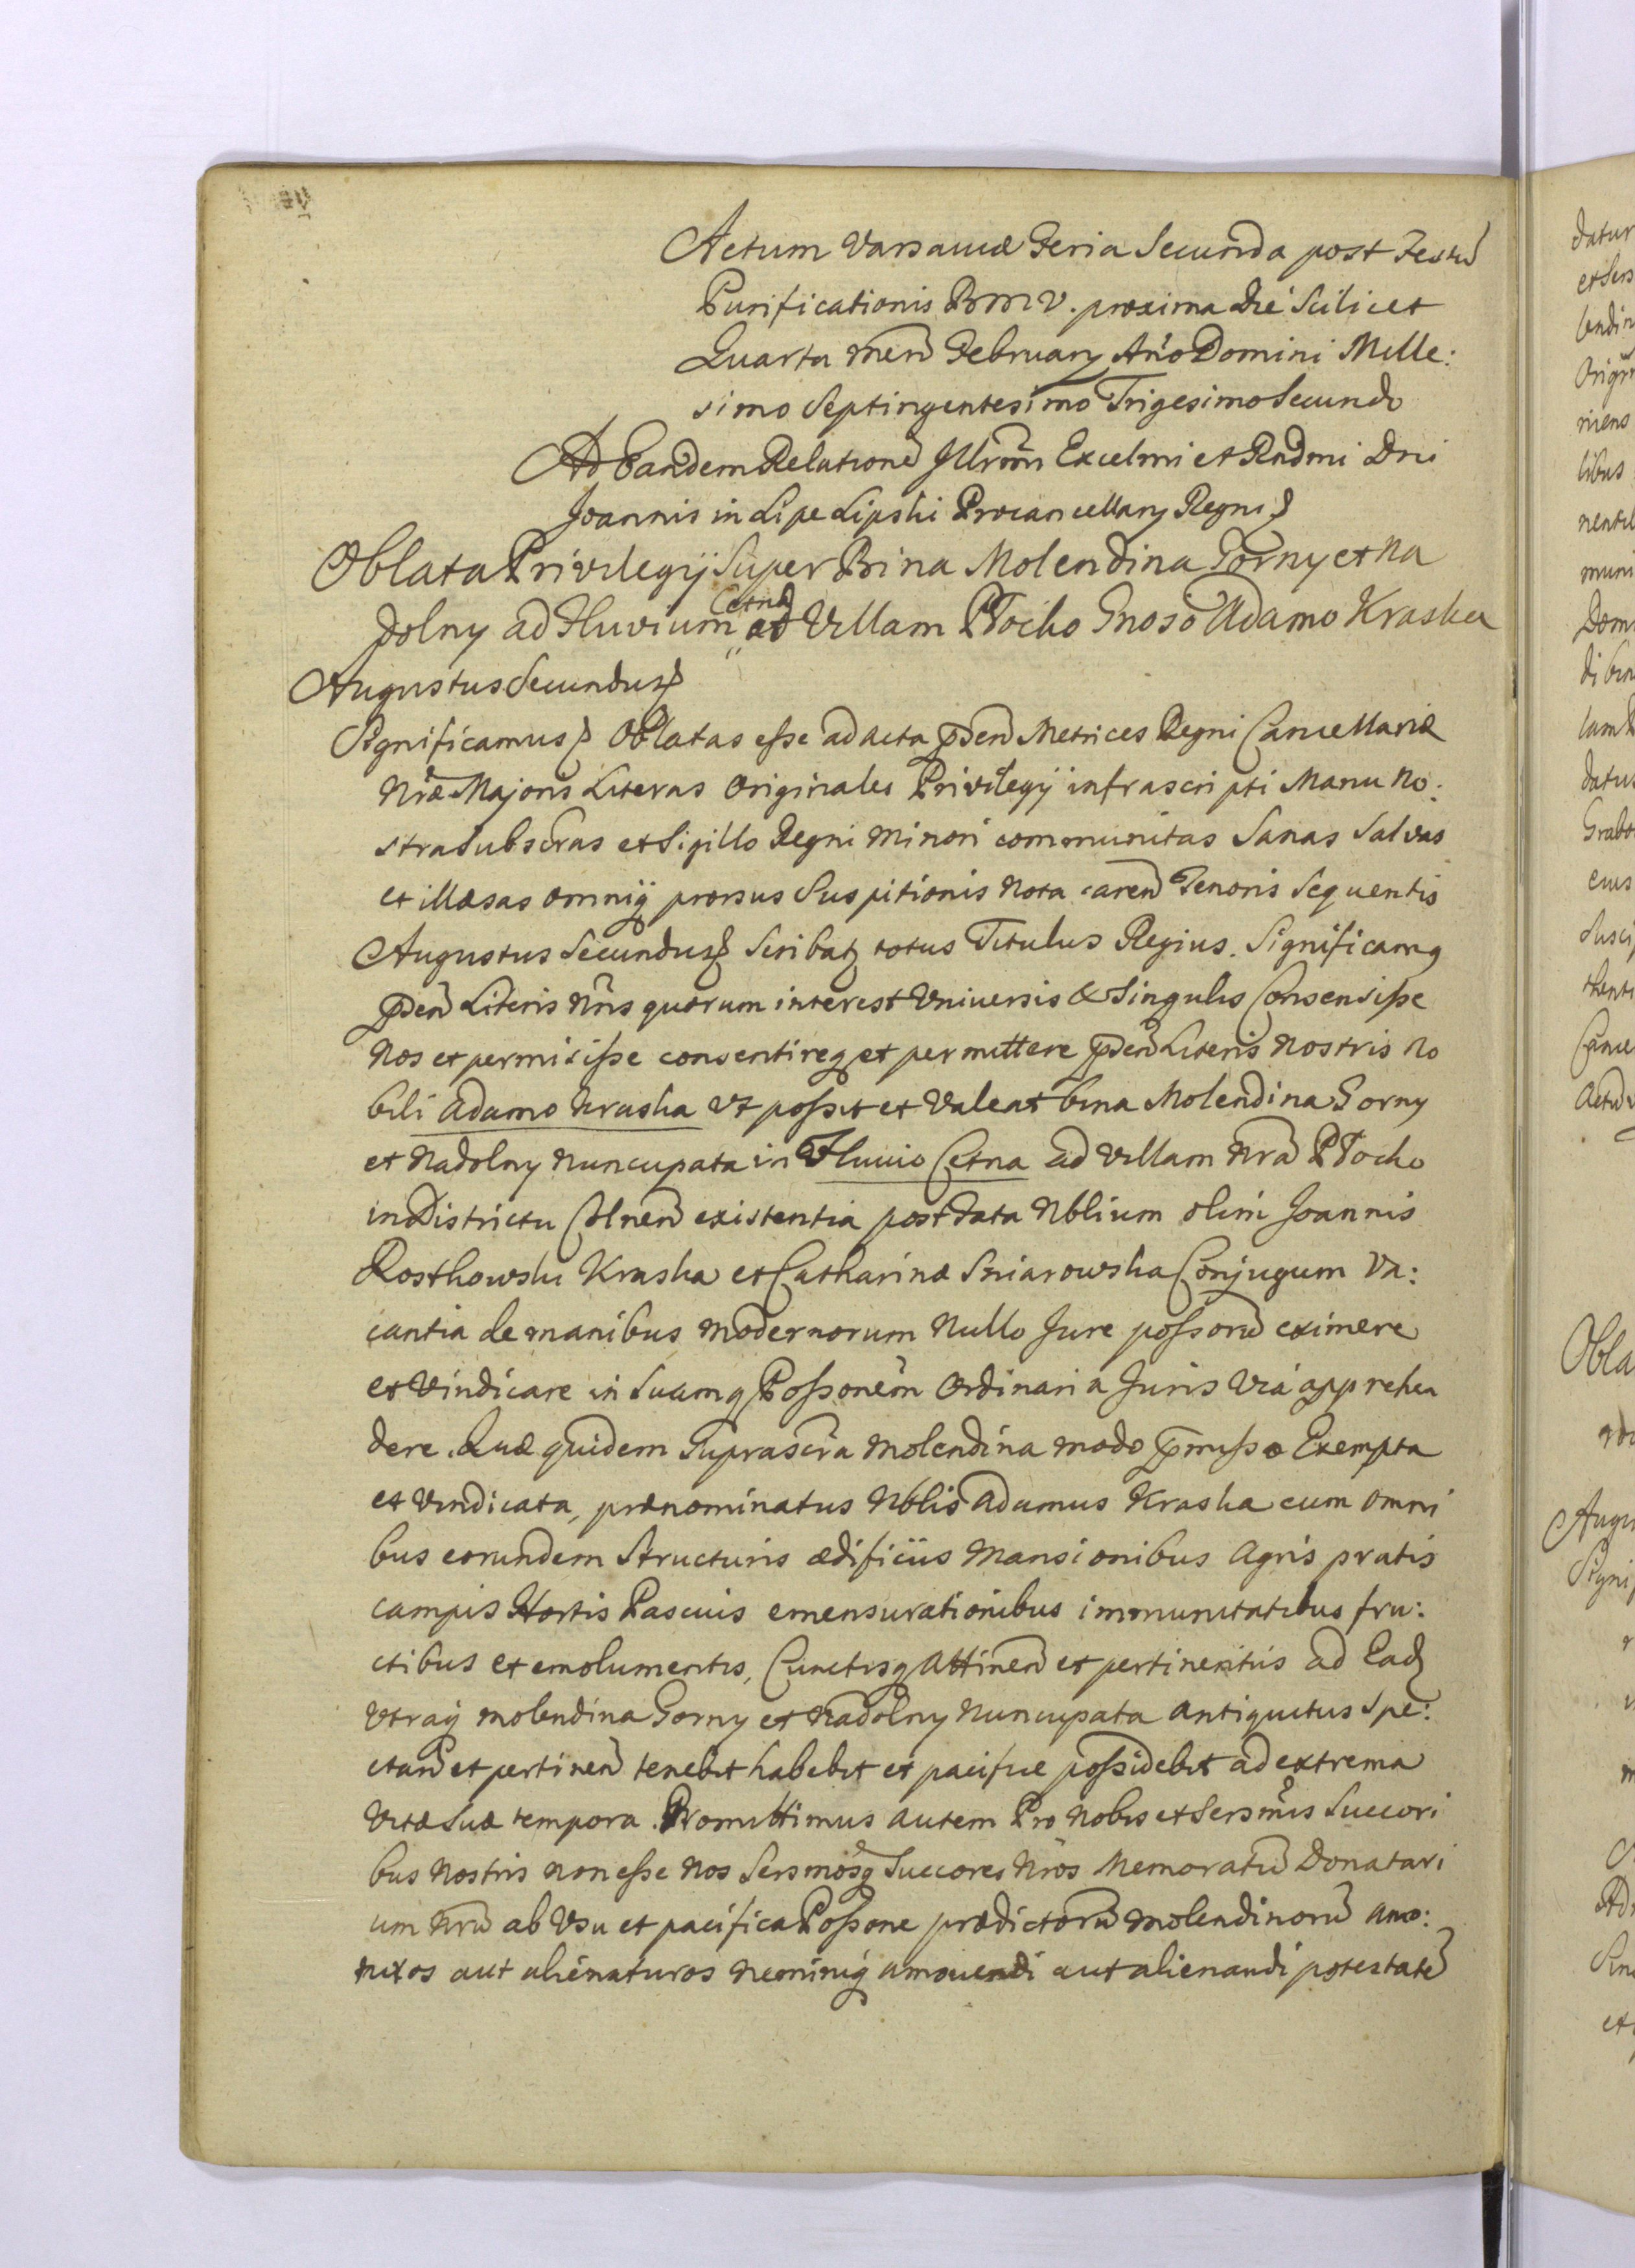 Actum Varsaviæ Feria Secunda post Festũ
Purificationis B M V. proxima Die Scilicet
Quarta Menẽ February Año Domini Mille:
simo Septingentesimo Trigesimo Secundo
Ad Eandem Relationẽ Illrm̃i Excelmi et Rndmi Dni
Joannis in Lipe Lipski Procancellary Regni
Oblata Privilegij Super Bina Molendina Gorny et Na
dolny ad Fluvium Cetna ad Villam Ptocko Gnoso Adamo Kraska
Augustus Secundus
Significamus Oblatas esse ad acta p̃sen Metrices Regni Cancellariæ
Nræ Majoris Literas Originales Privilegij infrascripti Manu No:
stra Subscras et Sigillo Regni Minori communitas Sanas Salvas
et illæsas omniq prorsus Suspitionis Nota carenẽ Tenoris Sequentis
Augustus Secundus Scribatz totus Titulus Regius. Significamq
p̃sen Literis Nris quorum interest Universis & Singulis Consensisse
Nos et permisisse consentireq et permittere p̃sen Literis Nostris No
bili Adamo Kraska Vt possit et Valeat bina Molendina Gorny
et Nadolny Nuncupata in Fluvio Cetna ad Villam Nrã Ptocko
in Districtu Colnenẽ existentia post data Nblium olim Joannis
Rostkowski Kraska et Catharinæ Sniarowska Conjugum Va:
cantia de manibus modernorum Nullo Jure possorũ eximere
et Vindicare in Suamq Possonem Ordinaria Juris Via apprehen
dere. Quæ quidem Suprascra Molendina modo p̃misso Exempta
et Vindicata, prænominatus Nblis Adamus Kraska cum omni
bus eorundem Structuris ædificiis Mansionibus Agris pratis
campis Hortis Pascuis emensurationibus immunitatibus fru:
ctibus et emolumentis, Cunctisq Attinenẽ et pertinentiis ad Ead
Vtraq molendina Gorny et Nadolny Nuncupata Antiquitus Spe:
ctanẽ et pertinenẽ tenebit habebit et pacifice possidebit ad extrema
Vitæ Suæ tempora. Promittimus autem Pro Nobis et Sersmis Succori
bus Nostris non esse Nos Sersmosq Succores Nros Memoratũ Donatari
um Nrũ ab Vsu et pacifica Possone prædictorũ Molendinorũ Amo:
turos aut alienaturos Neminiq amovendi aut alienandi potestatẽ